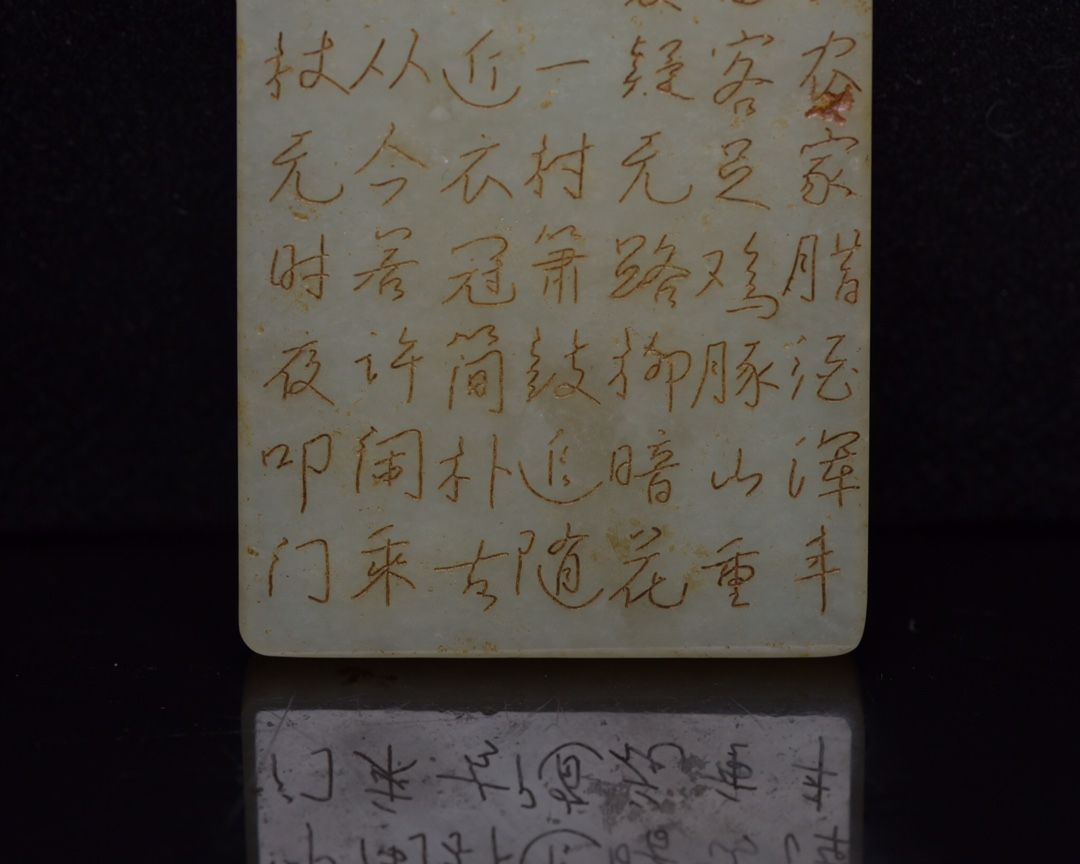 农家腊酒浑丰
客足鸡豚山重
疑无路柳暗花
一村箫鼓追随
近衣冠简朴古
从今若许闲乘
杖无时夜叩门